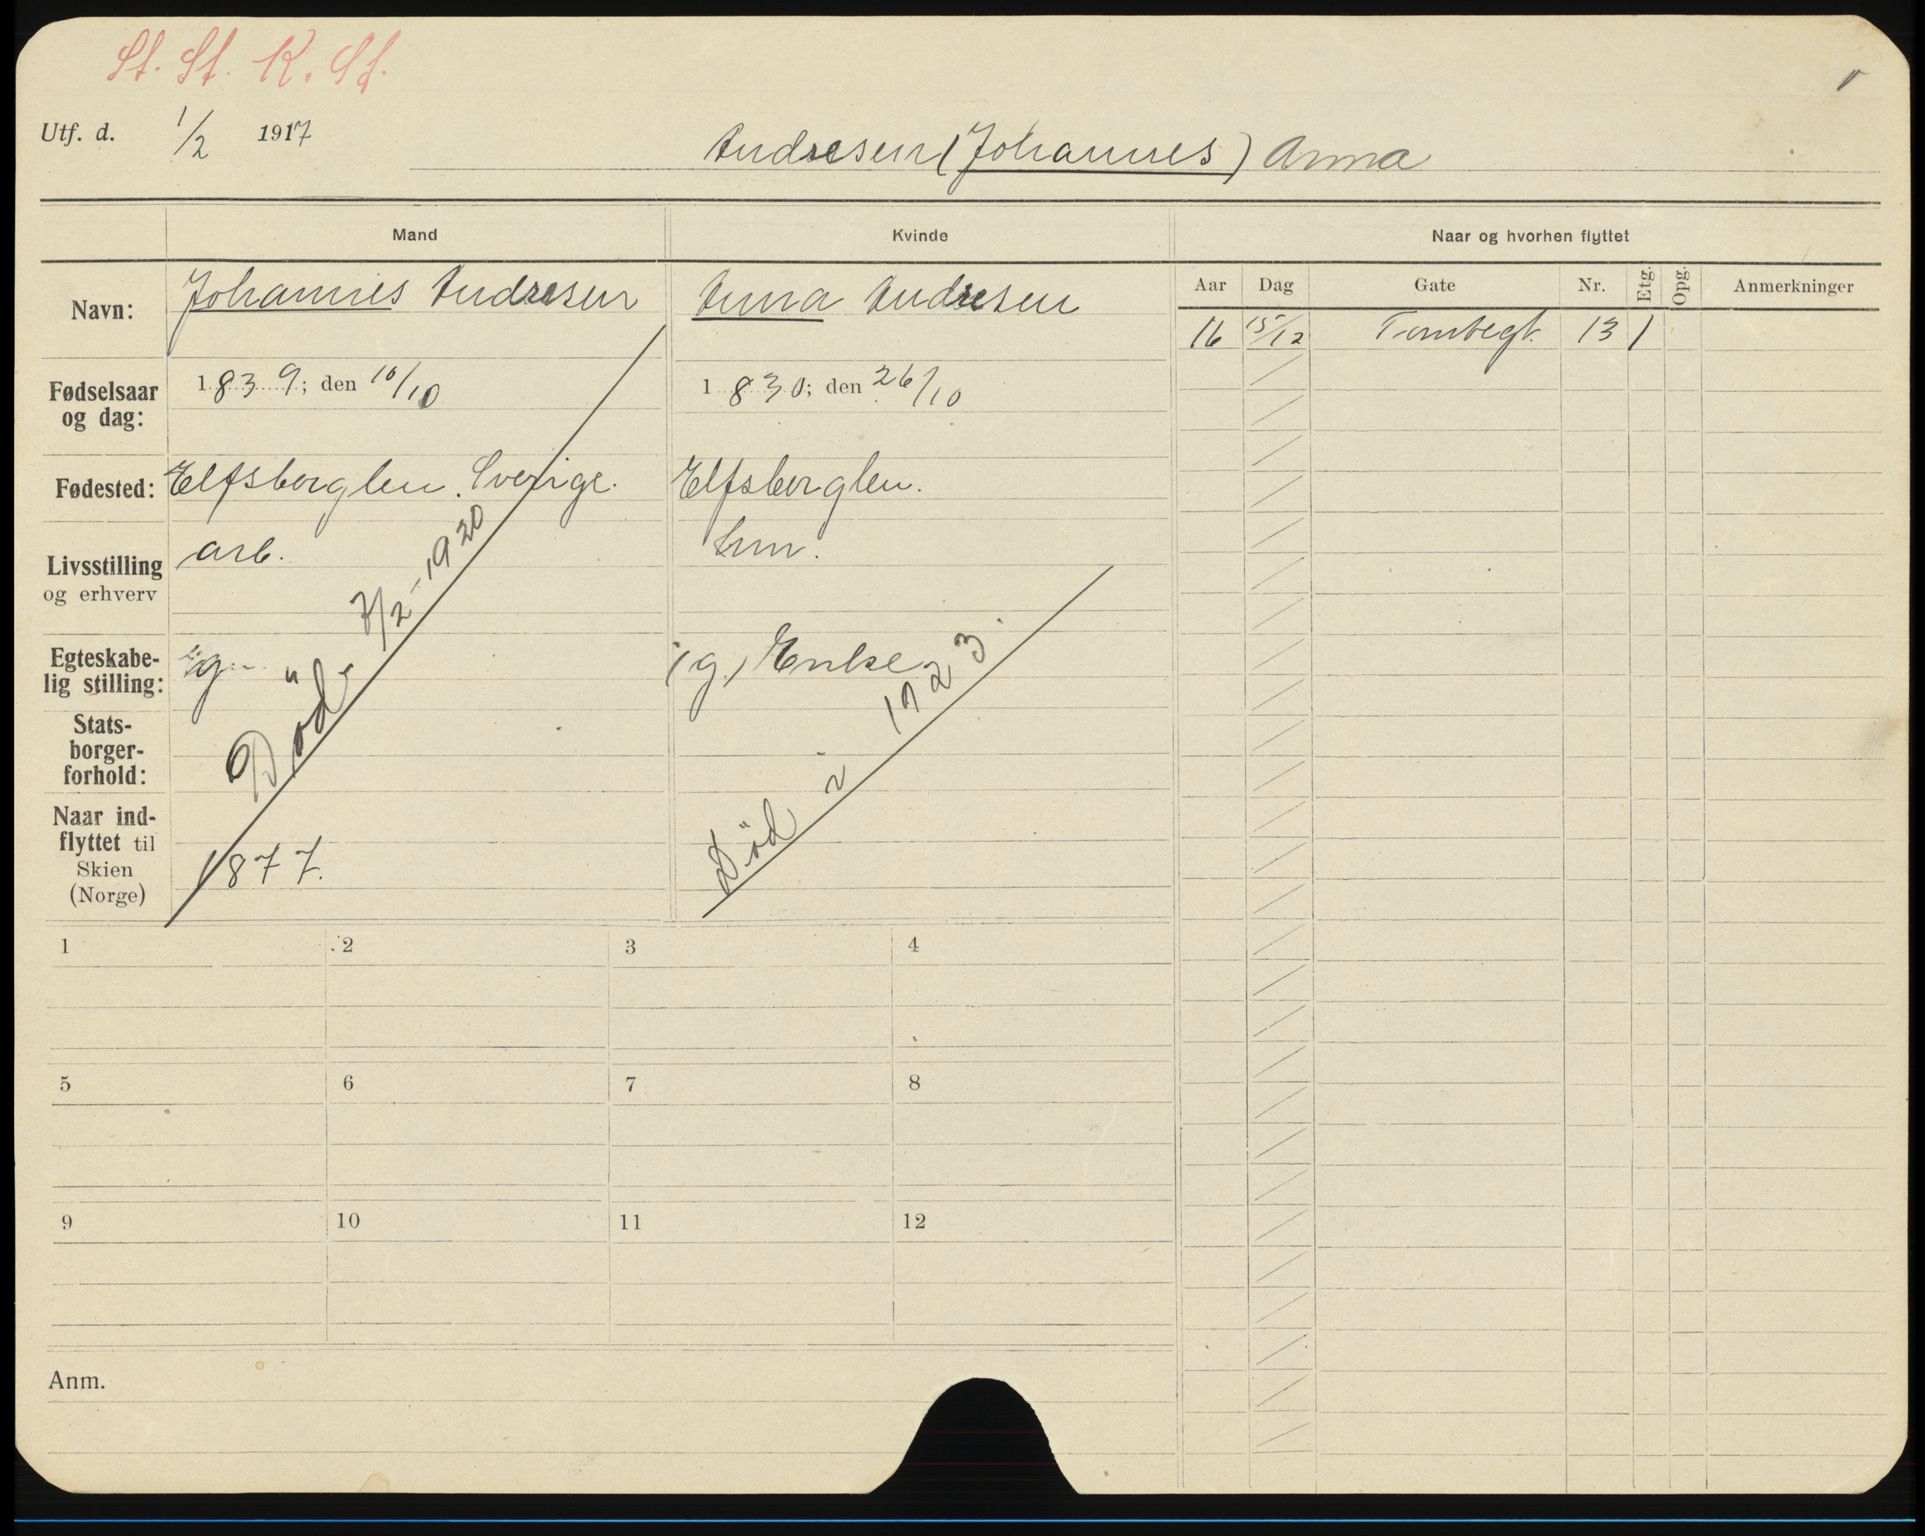 St. St. K. St.
Utf. d. 1/2 1917
Andresen (Johannes) Anna
Mand Kvinde Naar og hvorhen flyttet
Navn: Johannes Andresen Anna Andresen
Aar Dag Gate Nr. Etg. Opg. Anmerkninger
16 15/12 13 1
Fødselsaar og dag: 1839; den 10/10 1830; den 26/10
Fødested: Elfsborglen. Sverige. Elfsborglen.
Livsstilling og erhverv arb.
Egteskabelig stilling: g. (g.) Enke
Statsborgerforhold:
Naar indflyttet til Skien (Norge) 1877.
Død 7/2-1920
Død i 1923.
1 2 3 4
5 6 7 8
9 10 11 12
Anm.